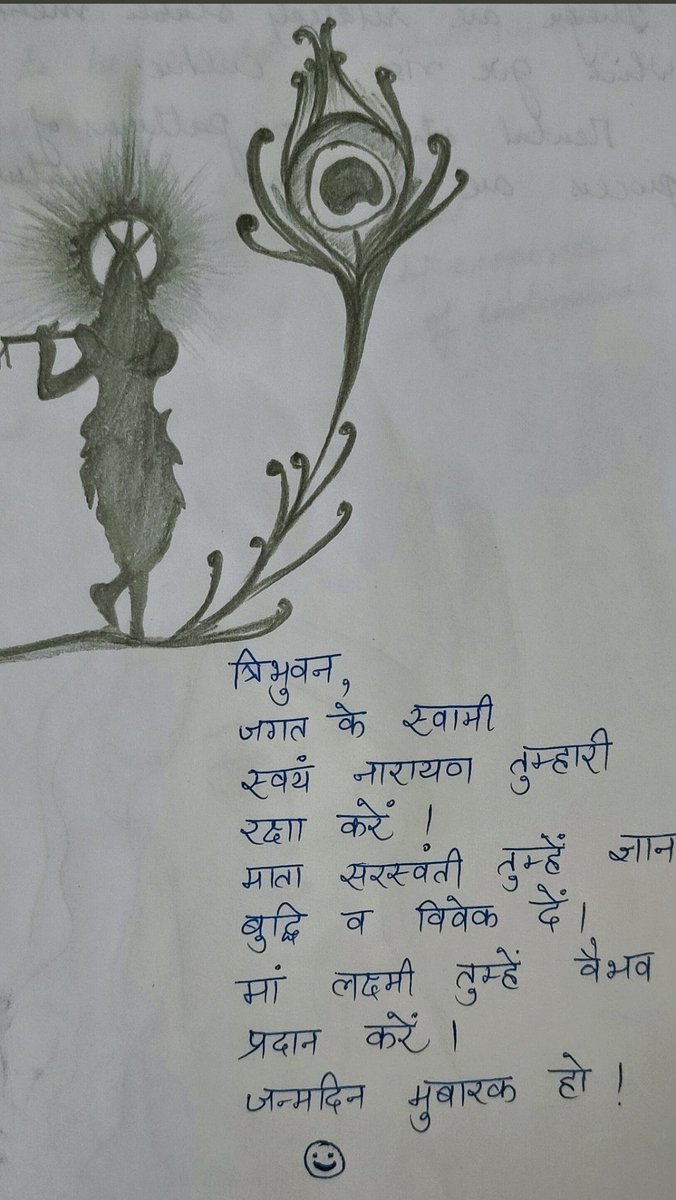 त्रिभुवन,
जगत के स्वामी
स्वयं नारायण तुम्हारी
रक्षा करें ।
माता सरस्वंती तुम्हें ज्ञान
बुद्धि व विवेक दें।
मां लक्ष्मी तुम्हें वैभव
प्रदान करें ।
जन्मदिन मुबारक हो !